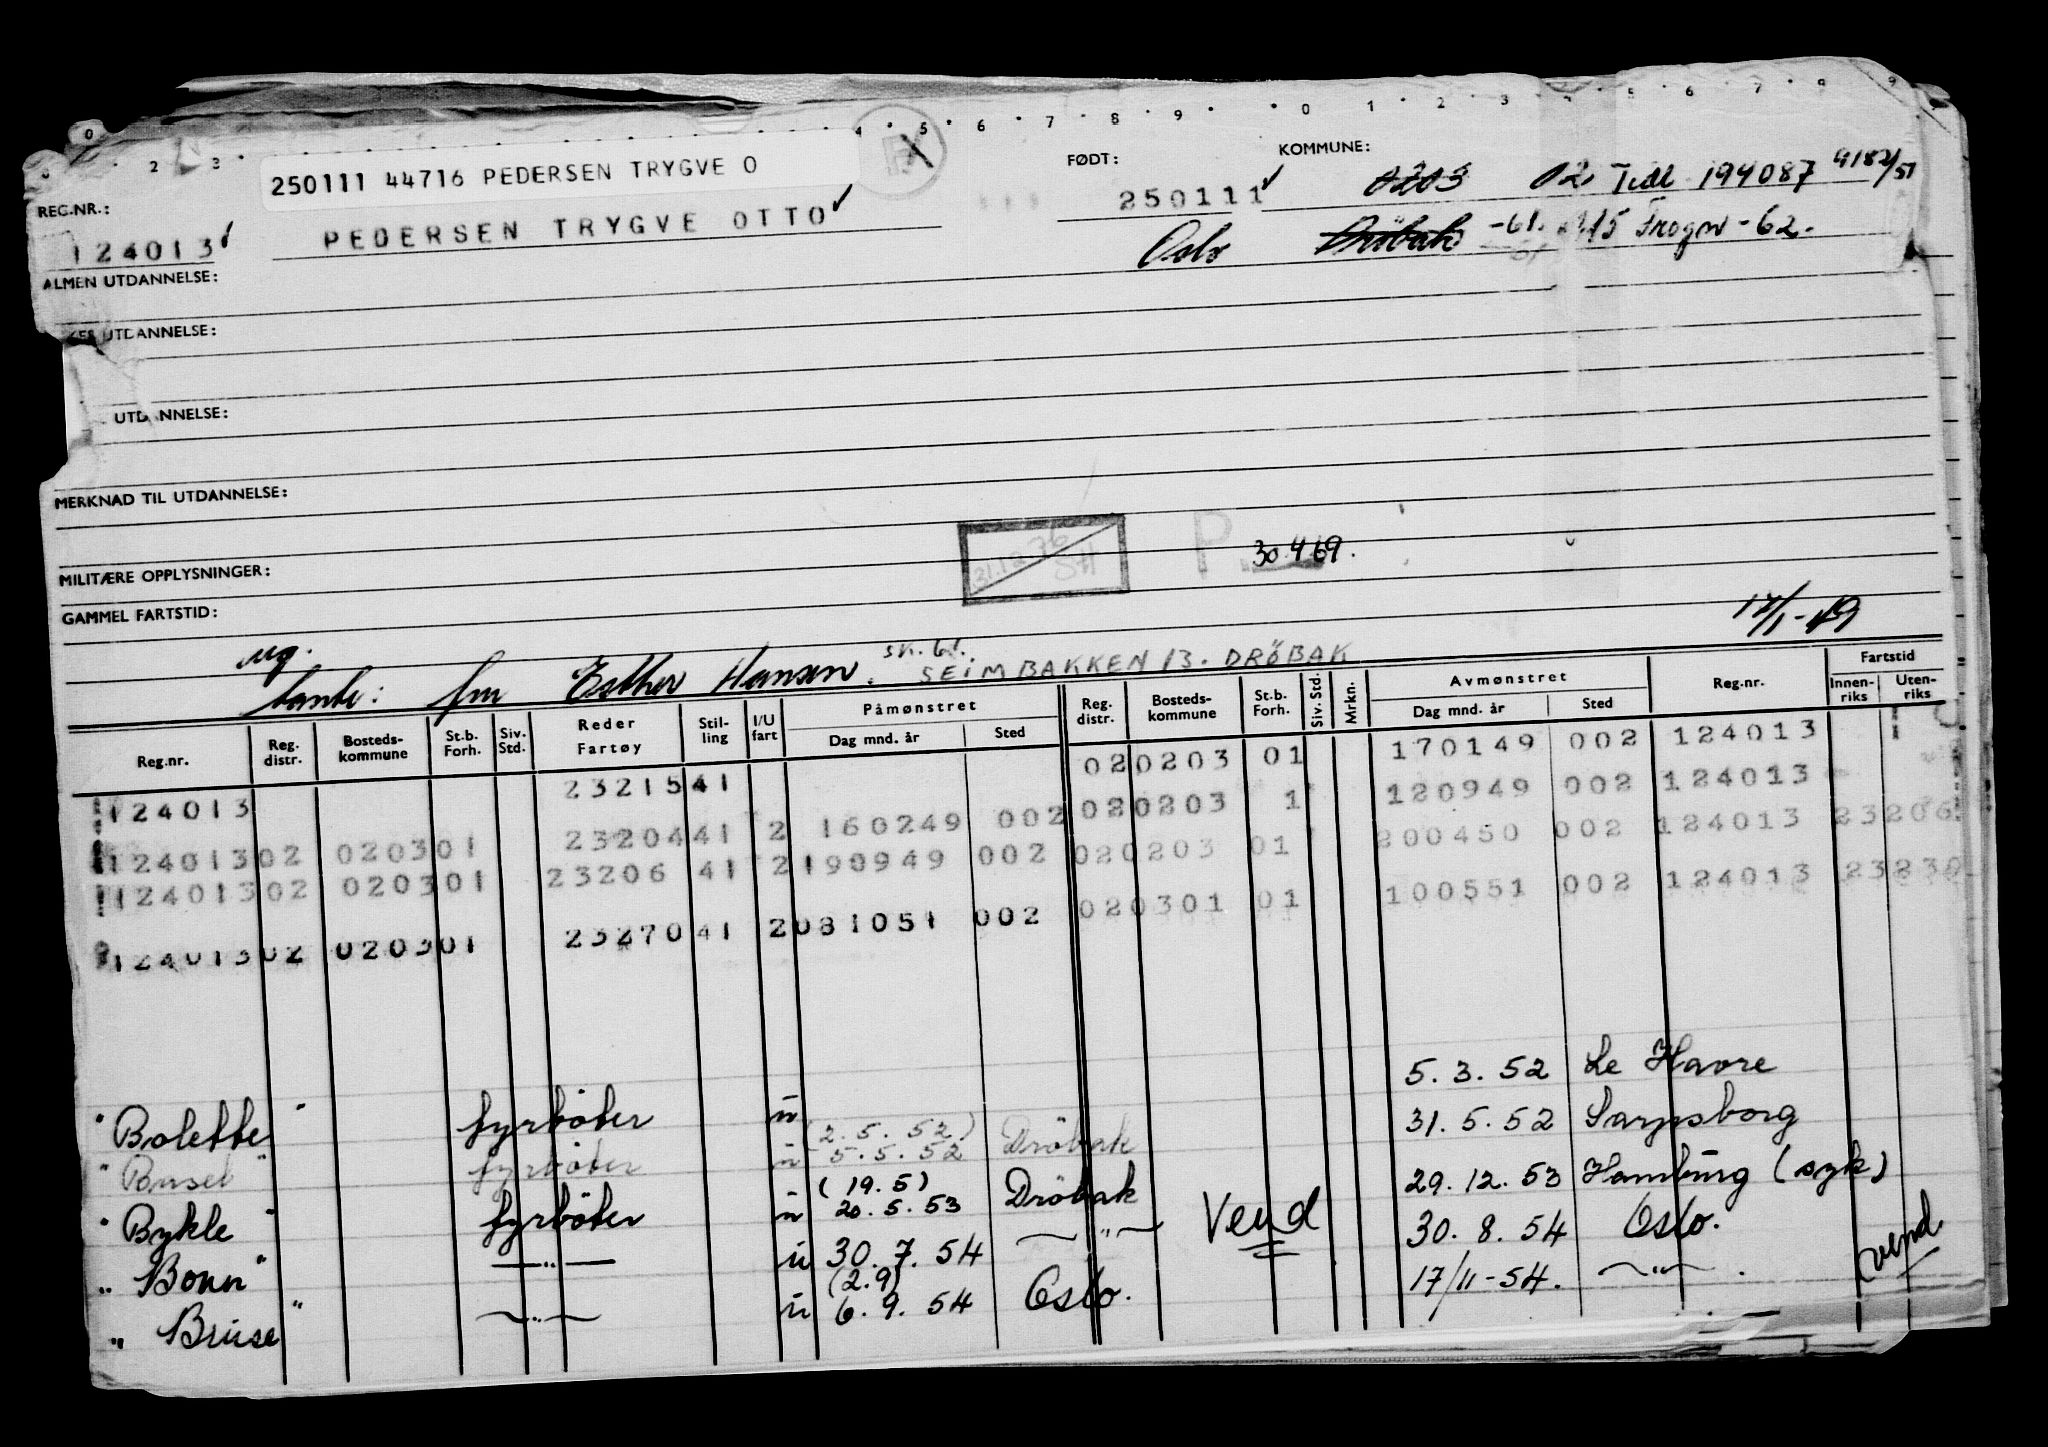 0 1 2 3 4 5 6 7 8 9
250111 44716 PEDERSEN TRYGVE O
FØDT: KOMMUNE:
REG.NR.: 250111 0203 02 Tidl 194087 4182/51
124013 PEDERSEN TRYGVE OTTO Oslo Dröbak -61. Frogn -62.
ALMEN UTDANNELSE:
UTDANNELSE:
UTDANNELSE:
MERKNAD TIL UTDANNELSE:
31.12.76 SH P. 30.4.69.
MILITÆRE OPPLYSNINGER:
GAMMEL FARTSTID:
17/1-49
ug.
tante: fru Esther Hansen. sk. 61. SEIMBAKKEN 13. DRÖBAK
Reg.nr. Reg. distr. Bosteds-kommune St.b. Forh. Siv. Std. Reder Fartøy Stil-ling I/U fart Påmønstret Dag mnd. år Sted Reg. distr. Bosteds-kommune St.b. Forh. Siv. Std. Mrkn. Avmønstret Dag mnd. år Sted Reg.nr. Fartstid Innen-riks Uten-riks
124013 23215 41 02 0203 01 170149 002 124013
124013 02 0203 01 23204 41 2 160249 002 02 0203 1 120949 002 124013
124013 02 0203 01 23206 41 2 190949 002 02 0203 01 200450 002 124013 23206
124013 02 0203 01 23270 41 2 081051 002 02 0301 01 100551 002 124013 23230
"Bolette" fyrbøter u 5.3.52 Le Havre
"Bonsel" fyrbøter u (2.5.52) 5.5.52 Dröbak 31.5.52 Sarpsborg
"Bykle" fyrbøter u (19.5) 20.5.53 Dröbak 29.12.53 Hamburg (syk)
"Bonn" —"— u 30.7.54 —"— Vend 30.8.54 Oslo.
"Bruse" —"— u (2.9) 6.9.54 Oslo. 17/11-54. —"— . vend